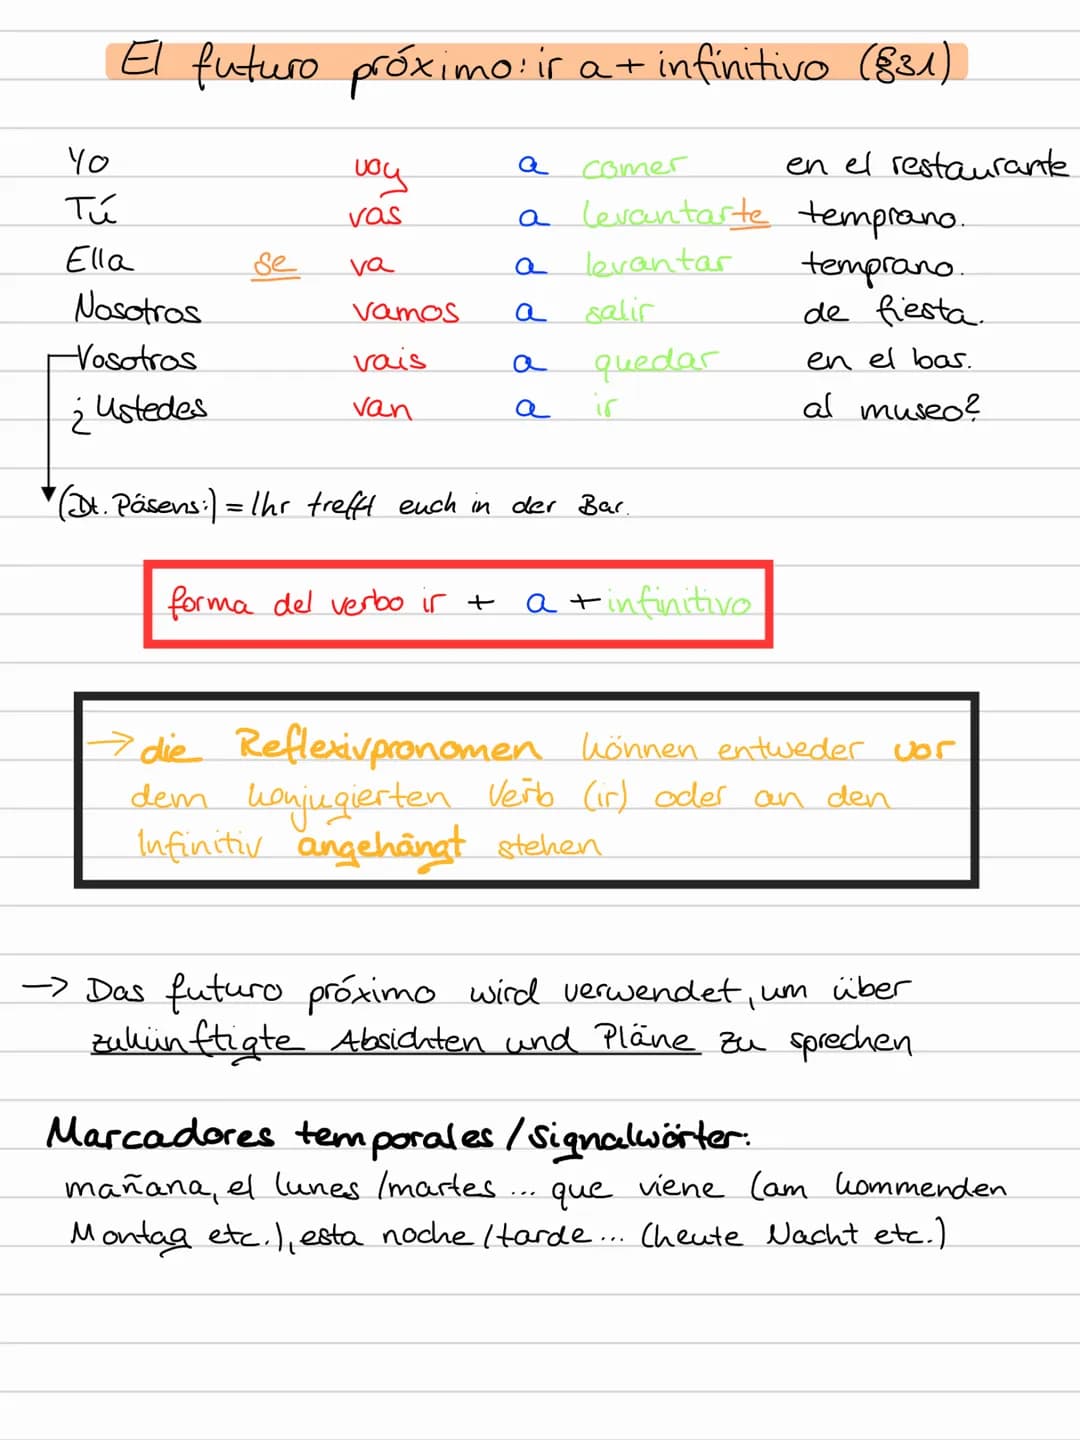 El futuro próximo: ir a + infinitivo (§31)
Yo voy a comer en el restaurante
Tú vas a levantarte temprano.
Ella se va a levantar temprano.
Nosotros vamos a salir de fiesta.
Vosotros vais a quedar en el bar.
¿Ustedes van a ir al museo?
(Dt. Päsens:) = Ihr trefft euch in der Bar.
forma del verbo ir + a + infinitivo
→ die Reflexivpronomen können entweder vor
dem konjugierten Verb (ir) oder an den
Infinitiv angehängt stehen
→ Das futuro próximo wird verwendet, um über
zukünftigte Absichten und Pläne zu sprechen
Marcadores temporales / Signalwörter:
mañana, el lunes /martes ... que viene (am kommenden
Montag etc.), esta noche /tarde ... (heute Nacht etc.)